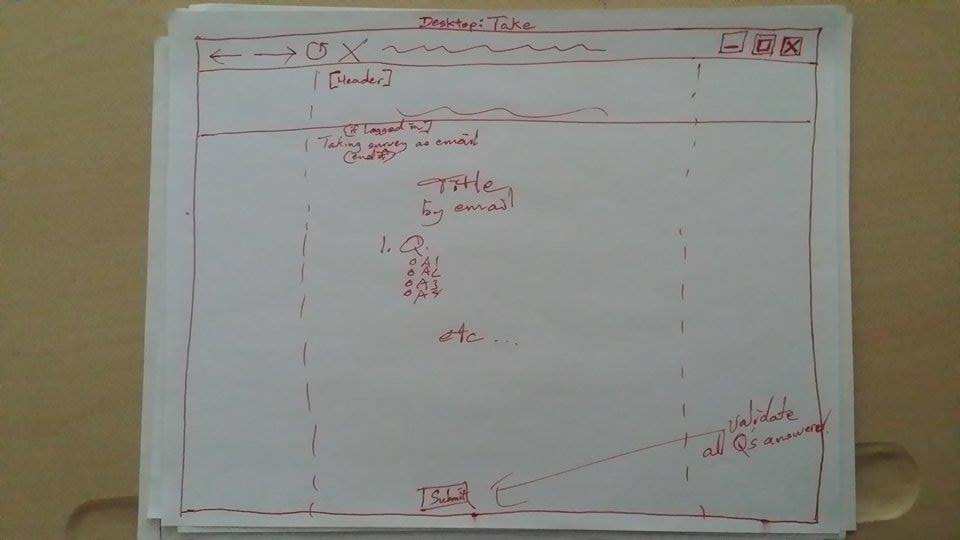 Desktop: Take
[Header]
[if logged in]
Taking survey as email
(end if)
Title
by email
1. Q.
o A1
o A2
o A3
o A4
etc ...
Validate
all Q's answered.
Submit